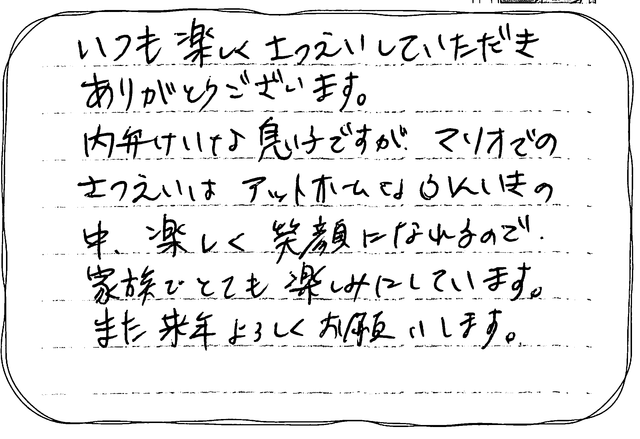 いつも楽しくさつえいしていただき
ありがとうございます。
内弁けいな息子ですが、マリオでの
さつえいは アットホームなふんいきの
中、楽しく笑顔になれるので、
家族でとても楽しみにしています。
また来年よろしくお願いします。